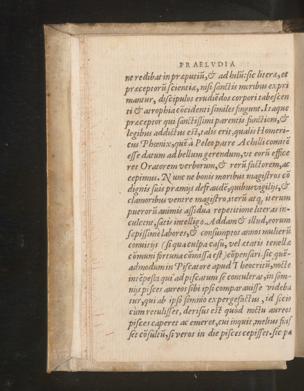 PRAELVDIA
ne redibat in præputiũ, & ad hilũ: sic literæ, et
præceptorũ scientia, nisi sanctis moribus expri
mantur, discipulos erudiẽdos corpori tabescen
ti & atrophia cõcidenti similes fingunt. Itaque
præceptor qui sanctissimi parentis sanctioni, &
legibus addictus est, talis erit, qualis Homeri-
cus Phœnix, quẽ à Peleo patre Achilli comitẽ
esse datum ad bellum gerendum, ut eorũ effice
res Oratorem verborum, & rerũ factorem, ac
cepimus. Nunc ne bonis moribus magistros cõ
dignis suis præmijs defraudẽt, quibus vigilijs, &
clamoribus ventre magistro, iterũ atq; iterum
puerorũ animis assidua repetitione literas in-
culcent, satis intelligo. Addam & illud, eorum
sæpissime labores, & consumptos annos mulierũ
comitijs (siqua culpa casu, vel ætatis tenellæ
cõmuni fortuna cõmissa est) cõpensari. sic quẽ-
admodum is Piscator apud Theocritũ, nocte
intẽpesta, quũ ad piscatum se conuleret, in som-
nijs pisces aureos sibi ipsi comparauisse videba
tur, qui ab ipso somno expergefactus, id socio
cum retulisset, derisus est quod noctu aureos
pisces caperet ac emeret, cui inquit, melius fuis
set cõsultũ, si veros in die pisces cepisset. Sic pa